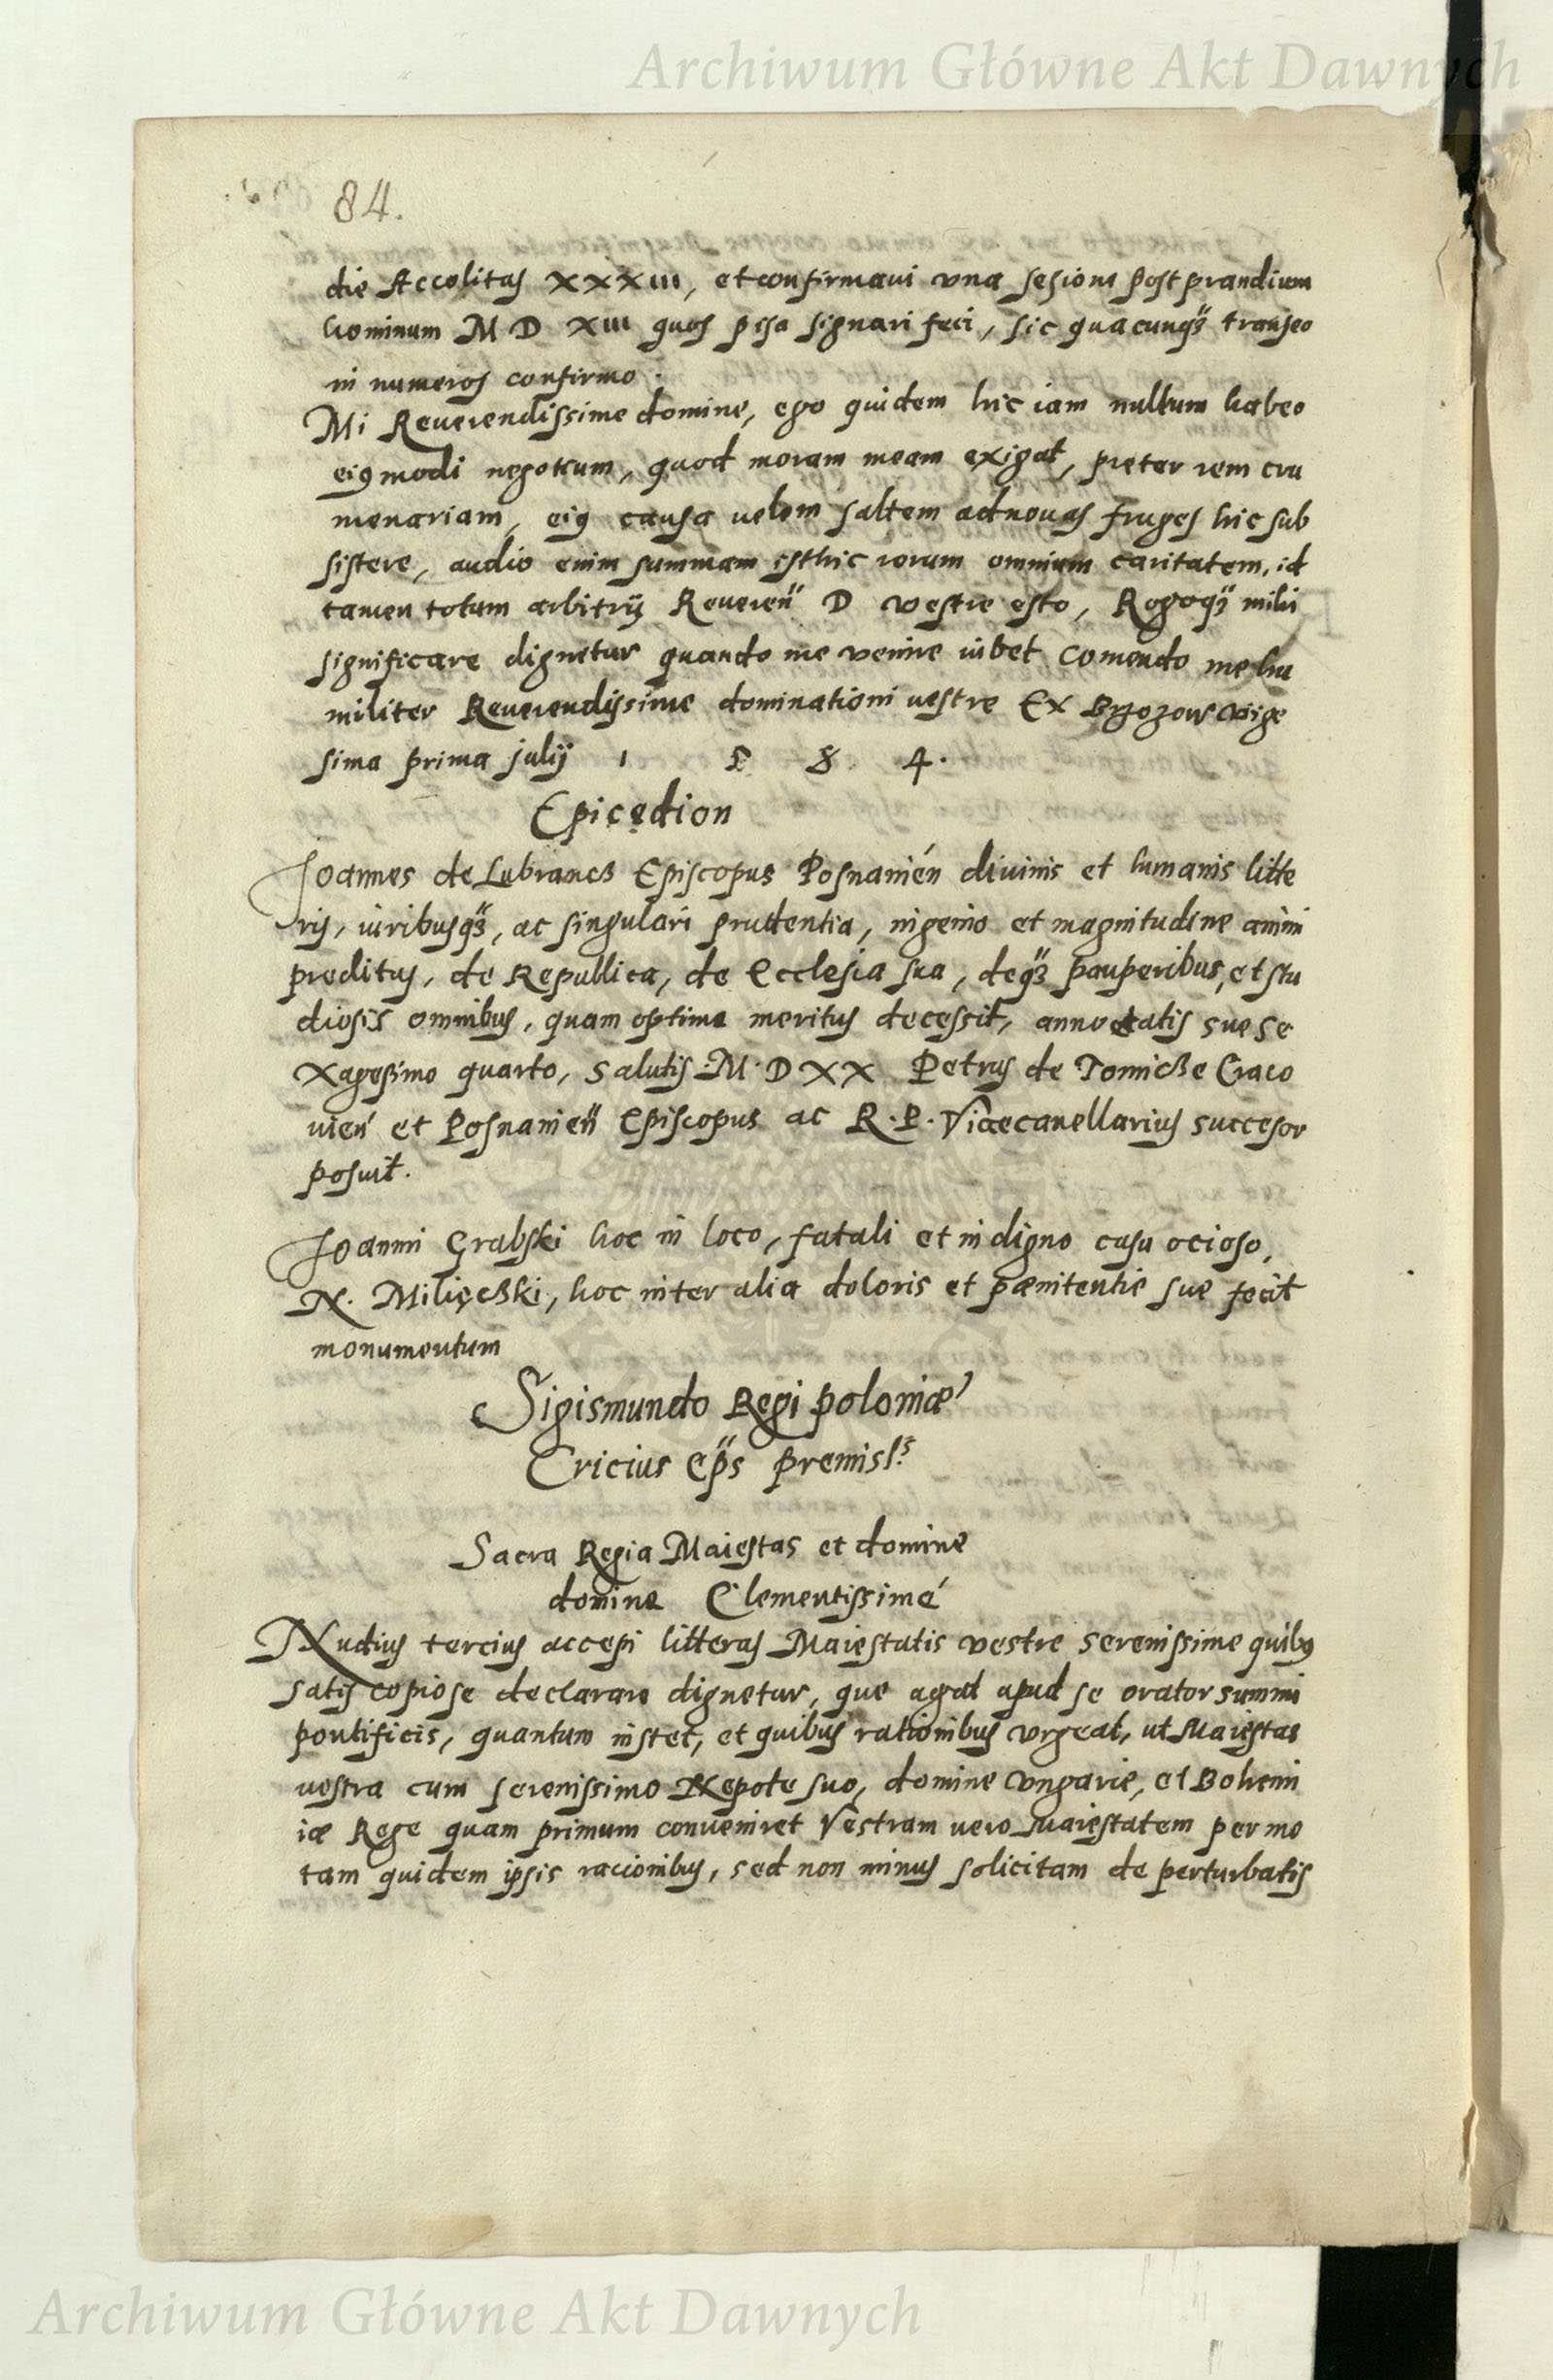 Archiwum Główne Akt Dawnych
84.
die Accolitas XXXIII, et confirmaui vna sesione post prandium
hominum M D XIII quos pisa signari feci, sic quacunqȝ transeo
in numeros confirmo.
Mi Reuerendissime domine, ego quidem hic iam nullum habeo
eiꝰmodi negotium, quod moram meam exigat, preter rem cru
menariam, eiꝰ causa uelem saltem ad nouas fruges hic sub
sistere, audio enim summam isthic rerum omnium caritatem, id
tamen totum arbitrij Reueren̄ D vestre esto, Rogoqȝ mihi
significare dignetur quando me venire iubet Comendo me hu
militer Reuerendissime dominationi uestre Ex Brzozow vige
sima prima julij 1 5 8 4.
Epicędion
Joannes de Lubrancz Episcopus Posnanień diuinis et humanis litte
ris, iuribusqȝ, ac singulari prudentia, ingenio et magnitudine animi
preditus, de Republica, de Ecclesia sua, deqȝ pauperibus, et stu
diosis omnibus, quam optime meritus decessit, anno etatis sue se
xagesimo quarto, salutis M D XX Petrus de Tomicze Craco
uień et Posnanień Episcopus ac R. P. Vicecanellarius succesor
posuit.
Joanni Grabski hoc in loco, fatali et indigno casu ocioso,
N. Milięczki, hoc inter alia doloris et pænitentie sue fecit
monumentum
Sigismundo Regi poloniæ
Cricius Ep̄s premisl.s
Sacra Regia Maiestas et domine
domine Clementissime
Nudius tercius accepi litteras Maiestatis vestre serenissime quibꝰ
satis copiose declarare dignetur, que agat apud se orator summi
pontificis, quantum instet, et quibus rationibus vrgeat, ut Maiestas
uestra cum serenissimo Nepote suo, domine Vngarie, et Bohemi
iæ Rege quam primum conueniret Vestram uero Maiestatem permo
tam quidem ipsis racionibus, sed non minus solicitam de perturbatis
Archiwum Główne Akt Dawnych